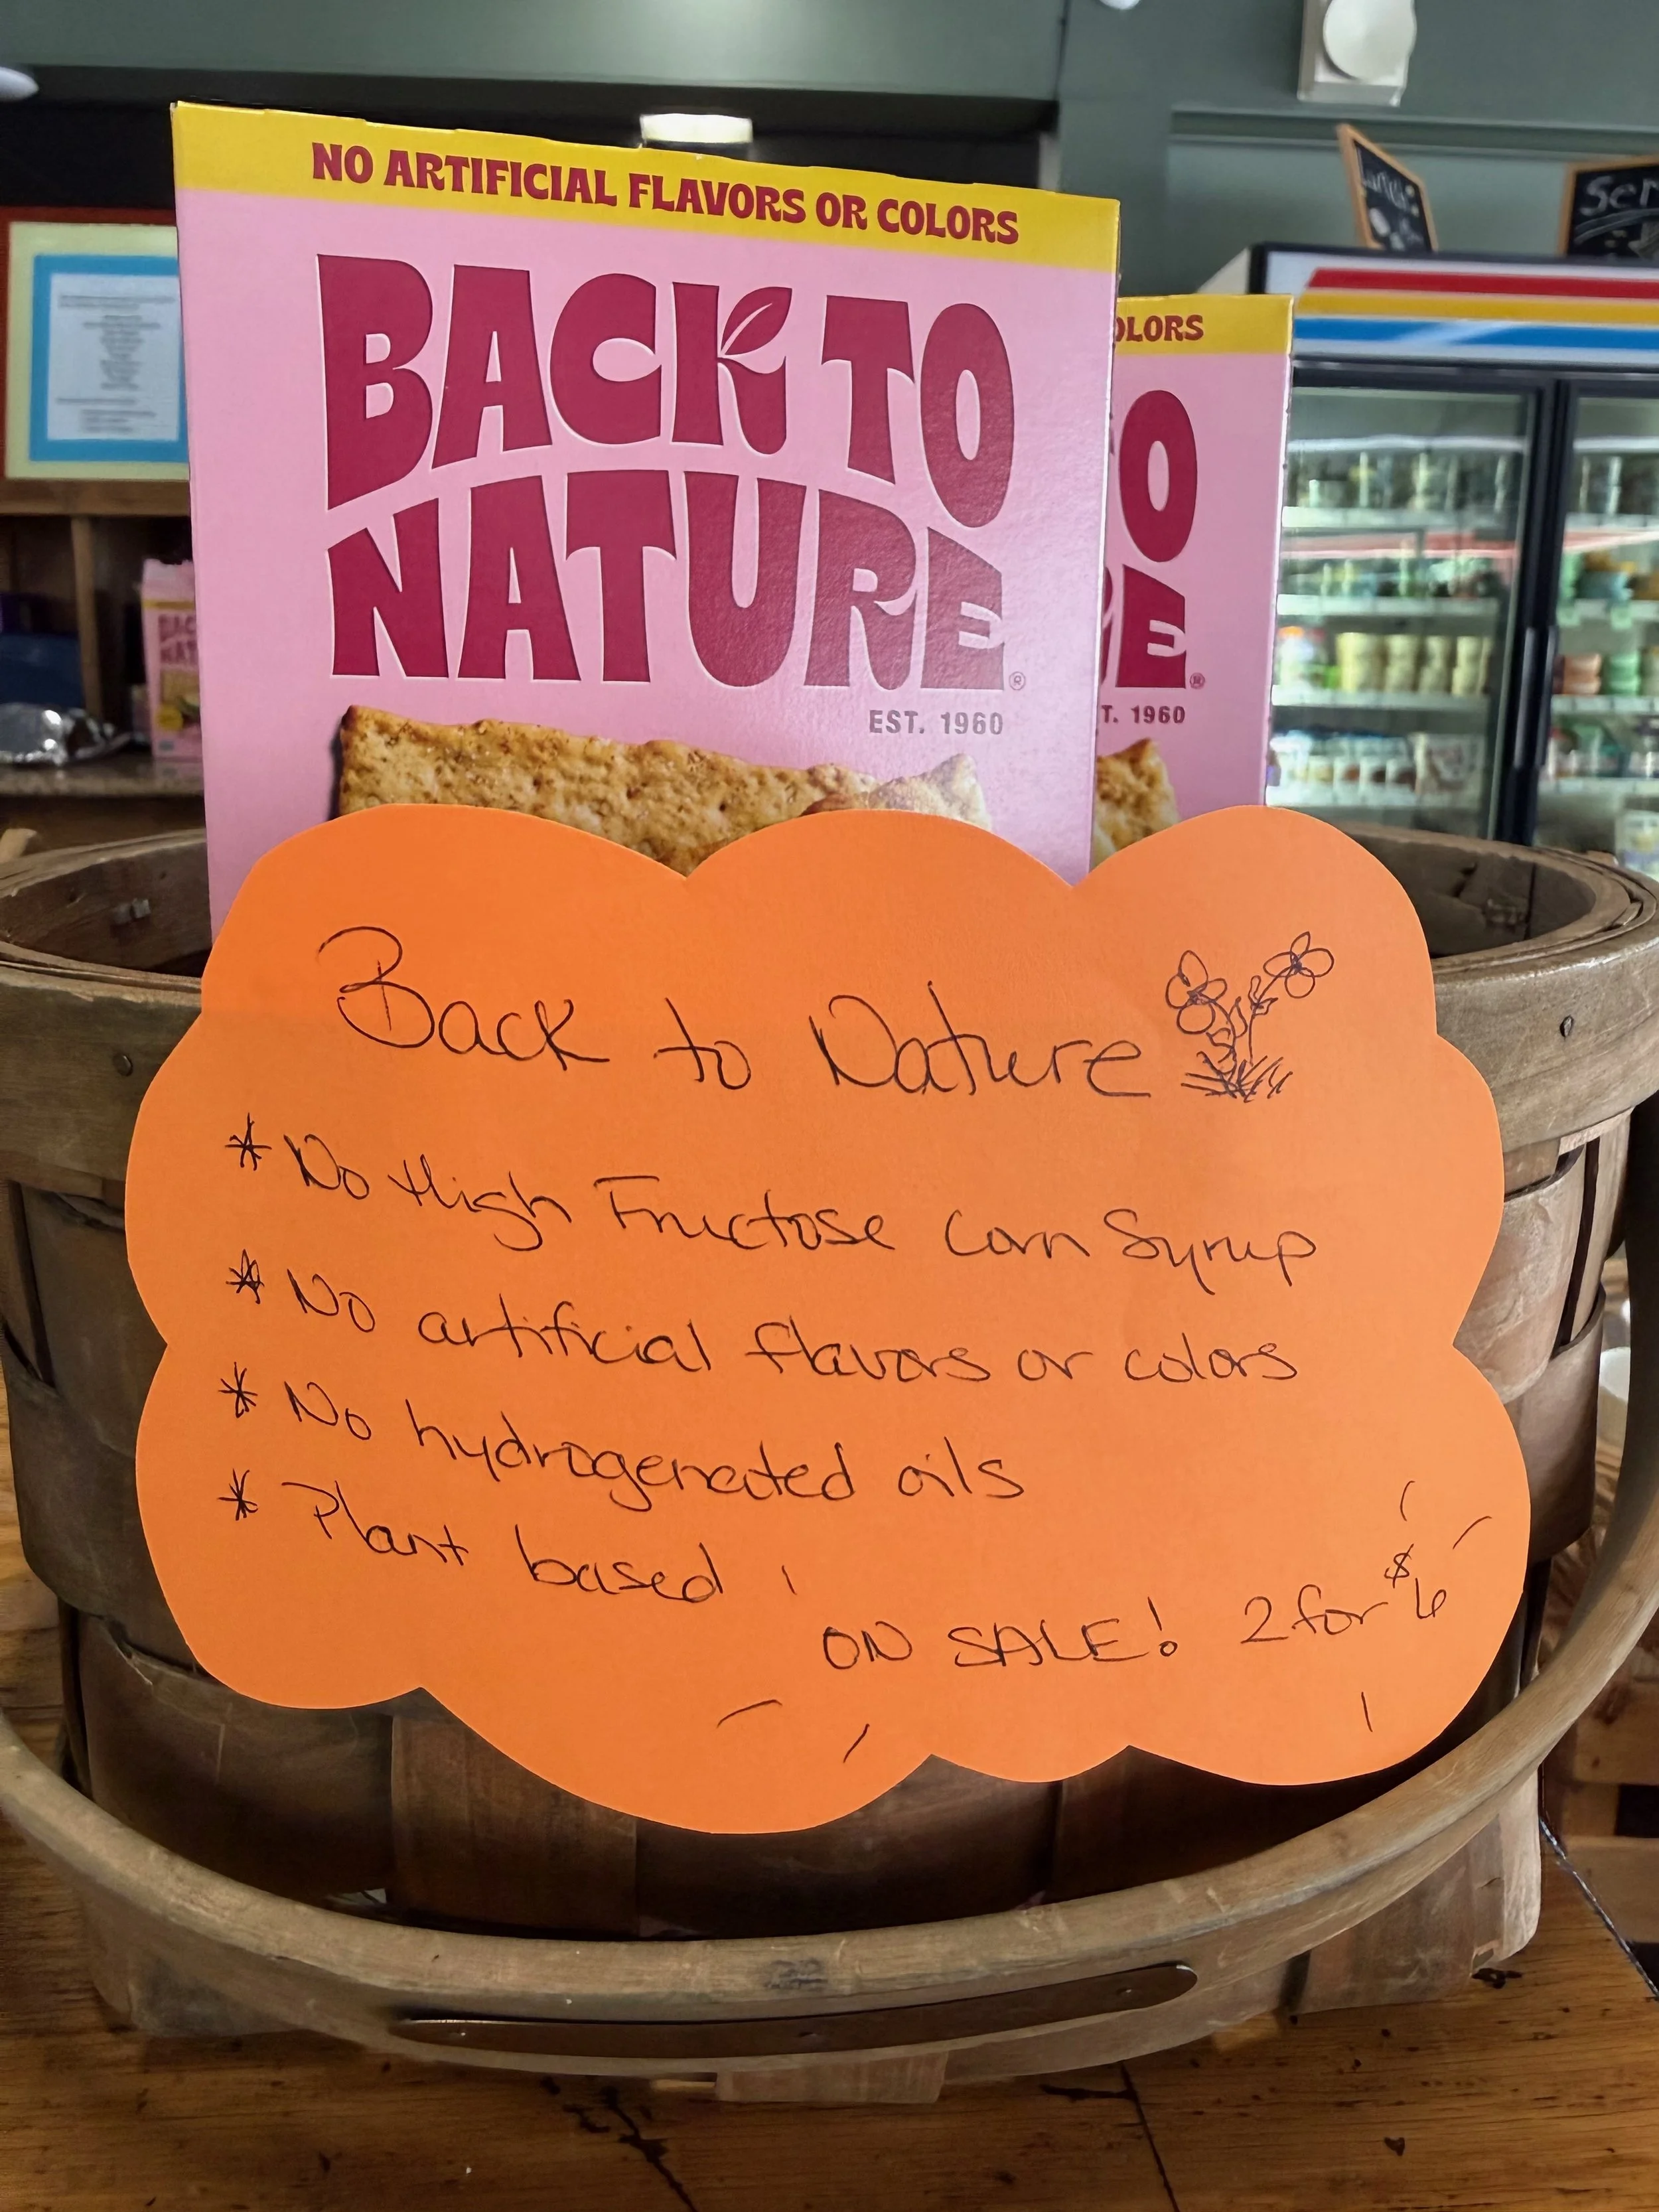 NO ARTIFICIAL FLAVORS OR COLORS
BACK TO
NATURE®
EST. 1960
OLORS
TO
E®
T. 1960
Back to Nature
* No High Fructose Corn Syrup
* No artificial flavors or colors
* No hydrogenated oils
* Plant based
ON SALE! 2 for $6